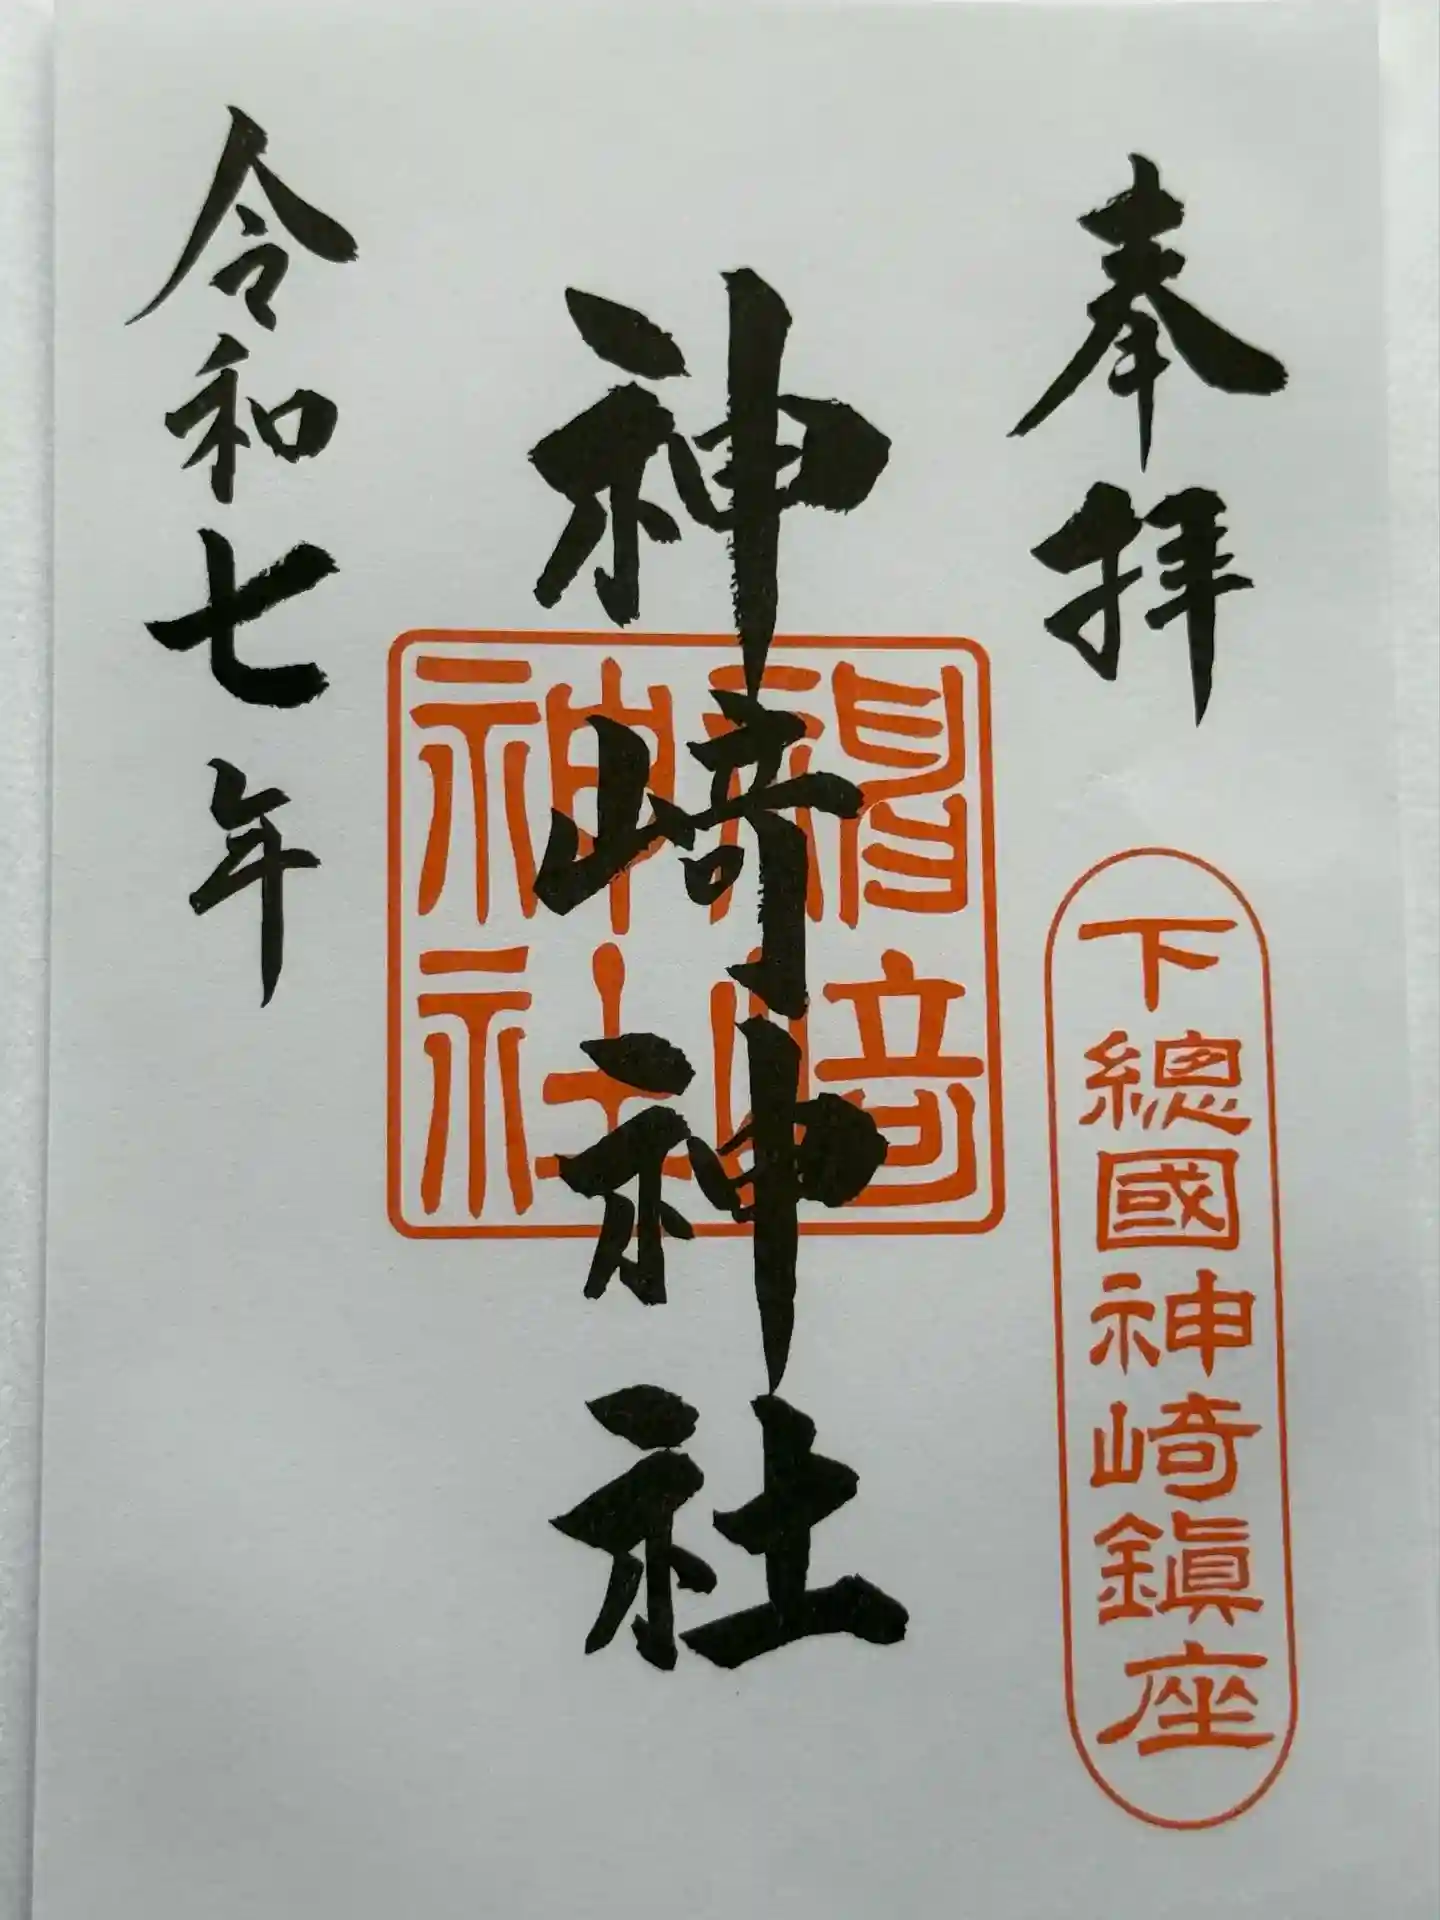 奉拝
下總國神崎鎮座
神崎神社
神崎
神社
令和七年